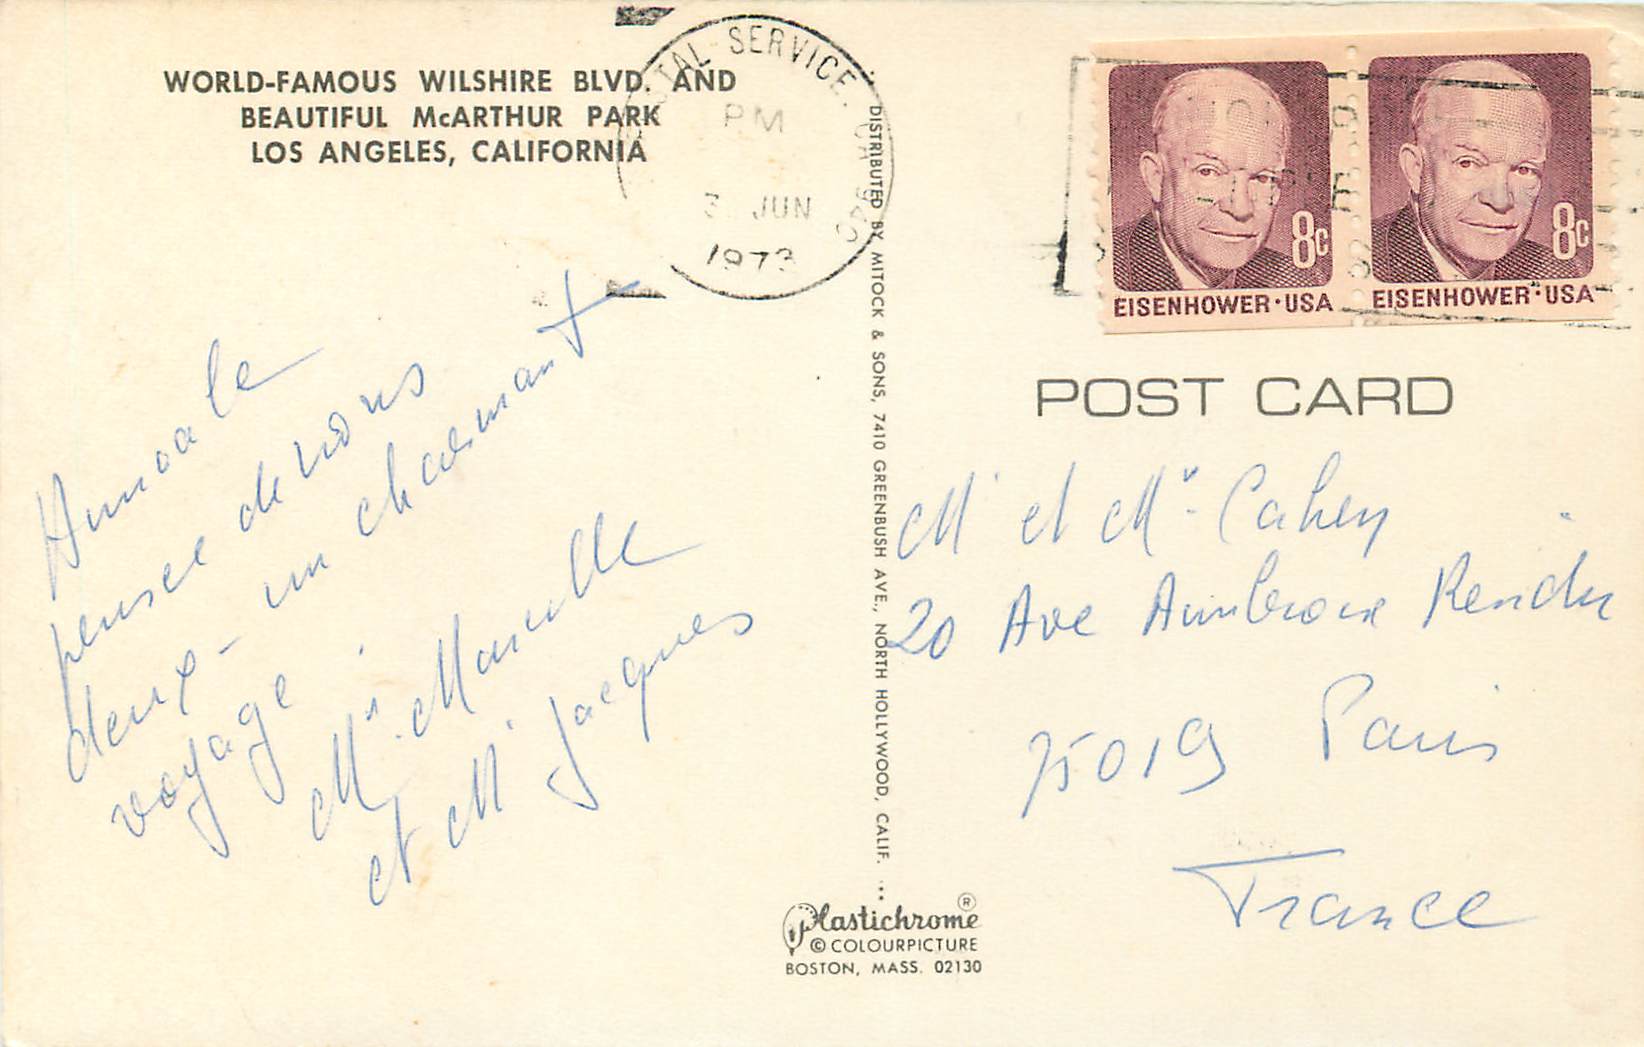 WORLD-FAMOUS WILSHIRE BLVD. AND
BEAUTIFUL McARTHUR PARK
LOS ANGELES, CALIFORNIA
POSTAL SERVICE. CA
PM
3 JUN
1973
8c
EISENHOWER·USA
8c
EISENHOWER·USA
DISTRIBUTED BY MITOCK & SONS, 7410 GREENBUSH AVE., NORTH HOLLYWOOD, CALIF.
POST CARD
Amicale
pensee de nous
deux - un charmant
voyage.
Me. Marcelle
et Mr Jacques
Mr et Me. Cahen
20 Ave Ambroise Rendu
75019 Paris
France
Plastichrome ®
© COLOURPICTURE
BOSTON, MASS. 02130